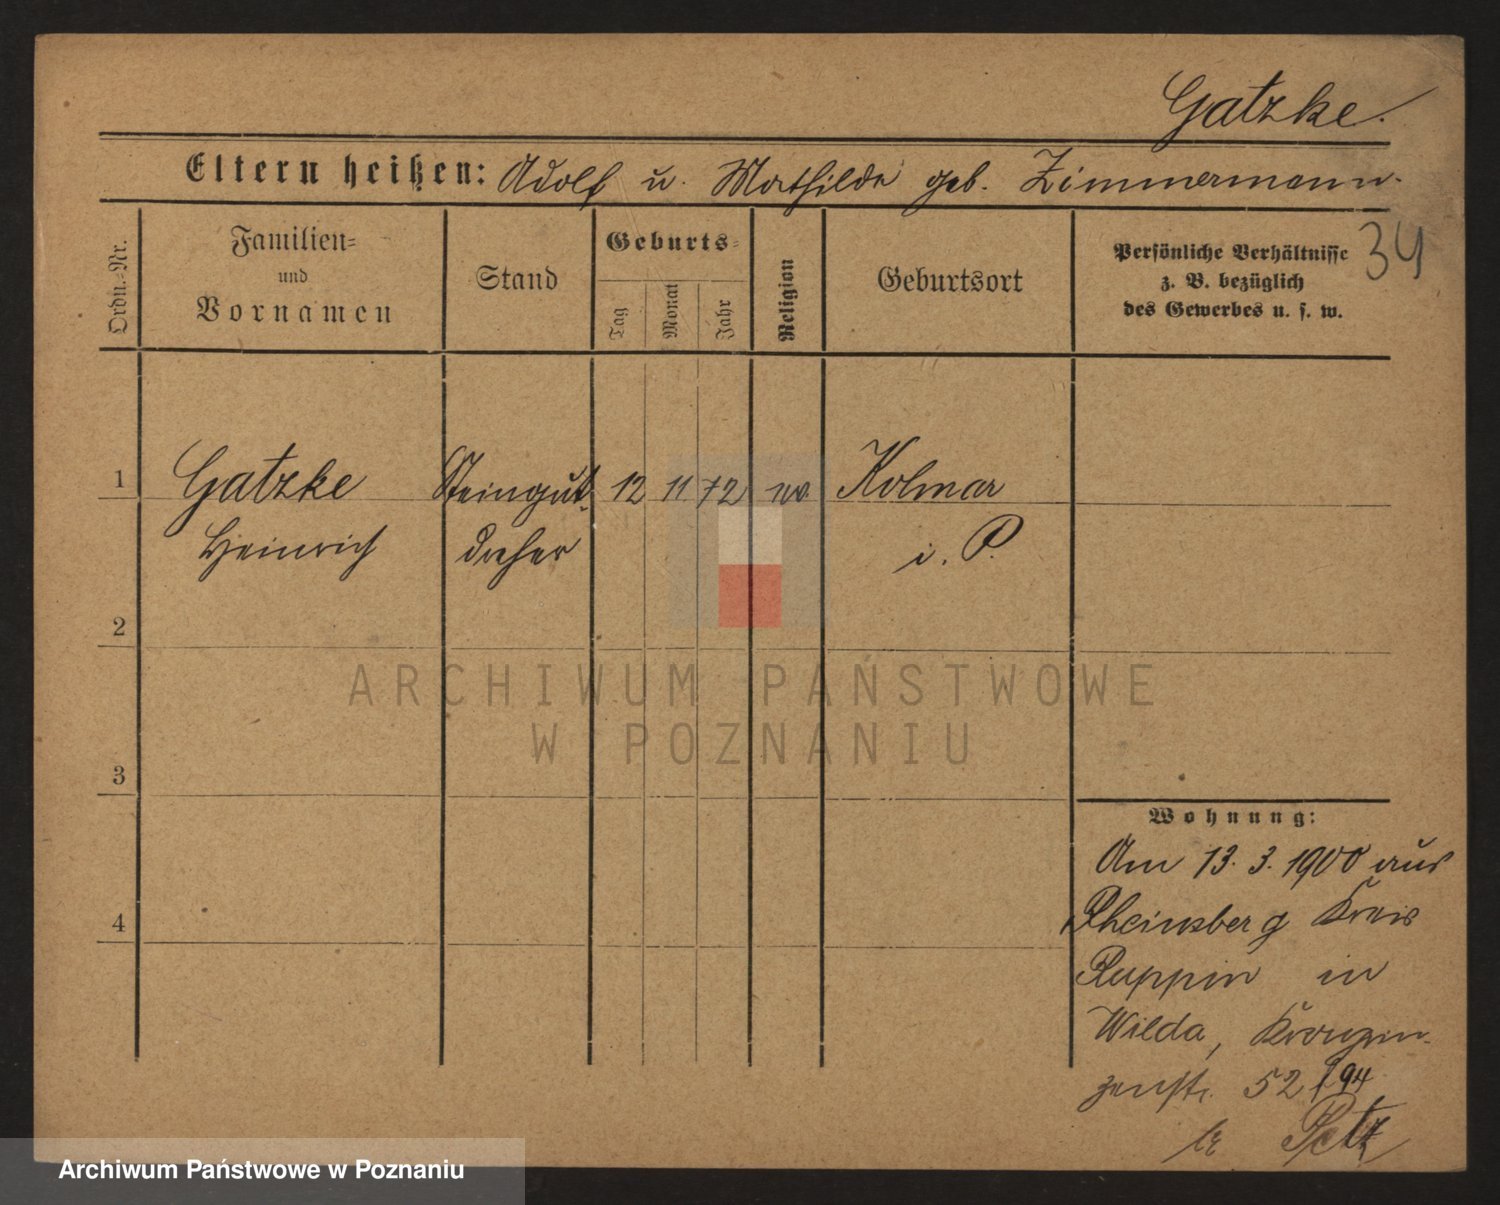 Gatzke.
Eltern heißen: Adolf u. Mathilde geb. Zimmermann.
34
Ordn.-Nr.
Familien-
und
Vornamen
Stand
Geburts-
Tag
Monat
Jahr
Religion
Geburtsort
Persönliche Verhältnisse
z. B. bezüglich
des Gewerbes u. s. w.
1 Gatzke Steingut- 12 11 72 ev. Kolmar
Heinrich dreher i. P.
2
3
4
ARCHIWUM PAŃSTWOWE
W POZNANIU
Wohnung:
Am 13. 3. 1900 aus
Rheinsberg Kreis
Ruppin in
Wilda, Kronprin-
zenstr. 52/94
Petz
Archiwum Państwowe w Poznaniu